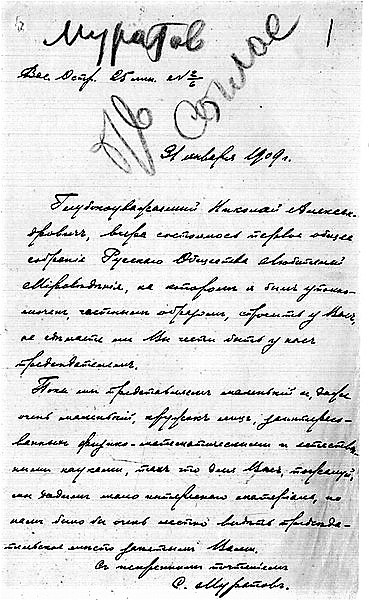 Муратов
Не согласе
Вас. Остр. 25 лин. д. № 2/6
31 января 1909 г.
Глубокоуважаемый Николай Алексан-
дровичъ, вчера состоялось первое общее
собраніе Русскаго Общества Любителей
Міровѣдѣнія, на которомъ я былъ уполно-
моченъ частнымъ образомъ, спросить у Васъ,
не сдѣлаете ли Вы чести быть у насъ
предсѣдателемъ.
Пока мы представляемъ маленькій и, даже
очень маленькій, кружокъ лицъ, заинтересо-
ванныхъ физико-математическими и естествен-
ными науками, такъ что для Васъ, пожалуй,
мы дадимъ мало интереснаго матеріала, но
намъ было бы очень лестно видѣть предсѣда-
тельское мѣсто занятымъ Вами.
Съ искреннимъ почтеніемъ
С. Муратовъ.